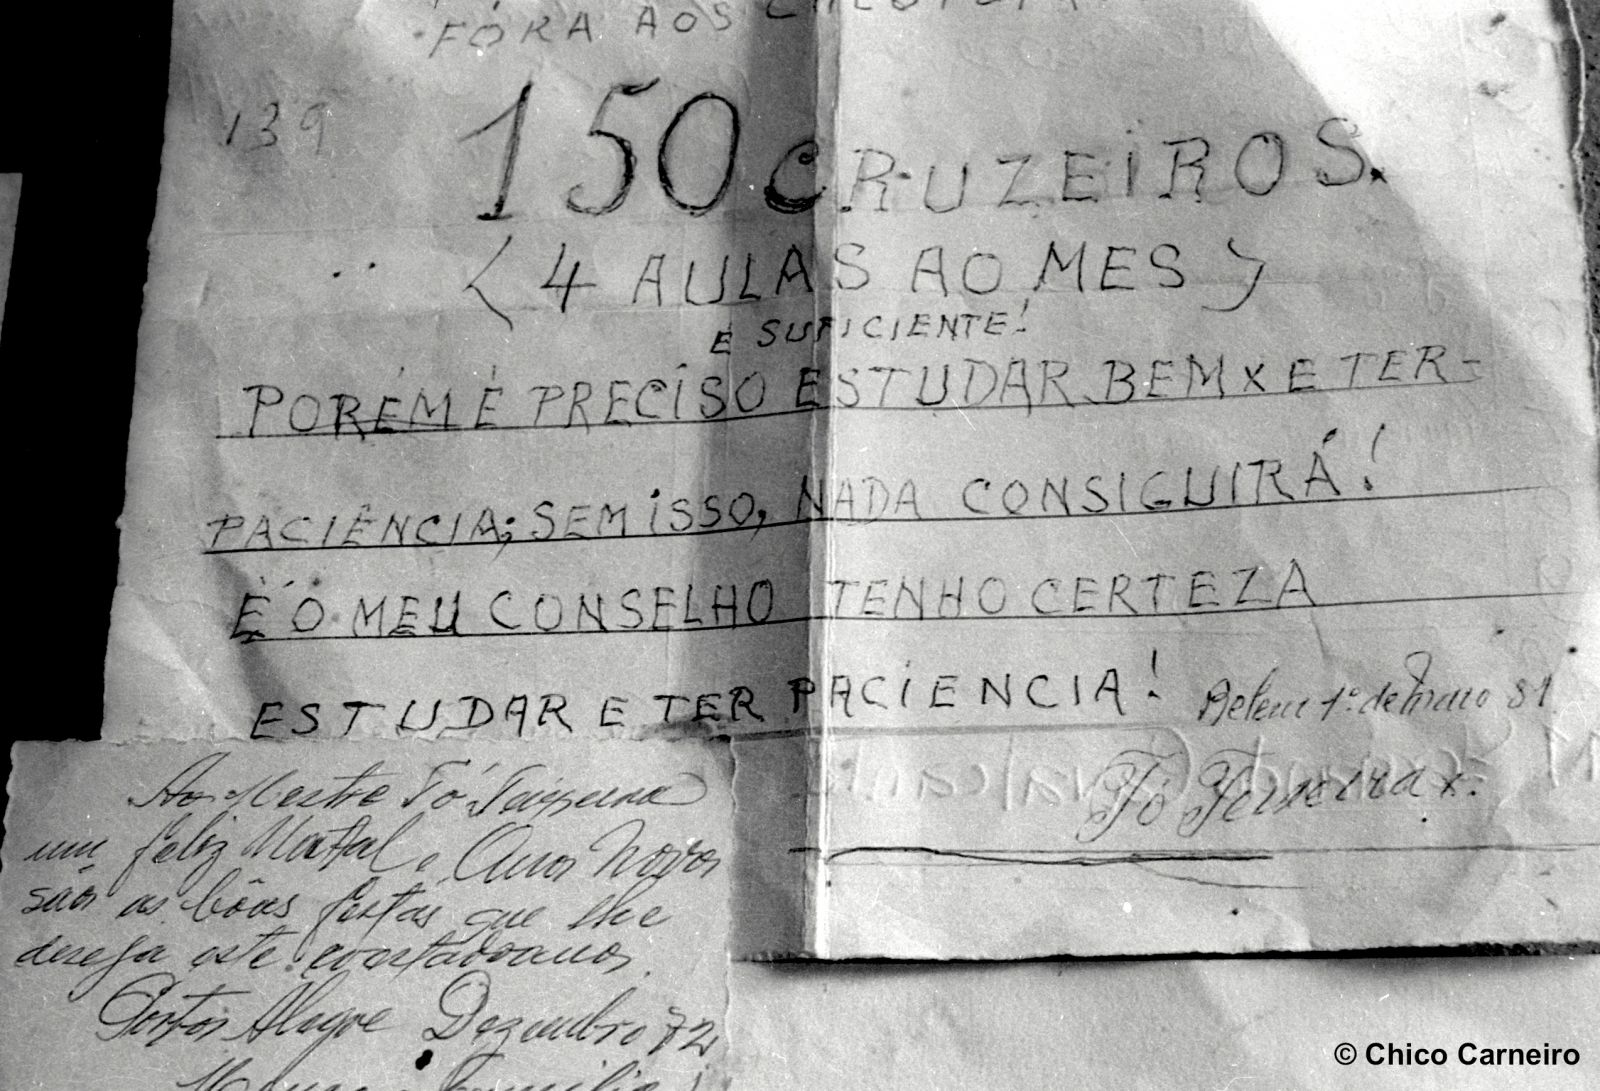 FÓRA AOS
139
150 CRUZEIROS.
( 4 AULAS AO MES )
É SUFICIENTE!
PORÉM É PRECISO ESTUDAR BEM X E TER-
PACIÊNCIA; SEM ISSO, NADA CONSIGUIRÁ!
É O MEU CONSELHO TENHO CERTEZA
ESTUDAR E TER PACIENCIA!
Belem 1º. de maio 81
Tó Teixeira x.
Ao Mestre Tó Teixeira
um feliz Natal e Ano Novo
são as bôas festas que lhe
deseja este
Porto Alegre Dezembro 72
© Chico Carneiro